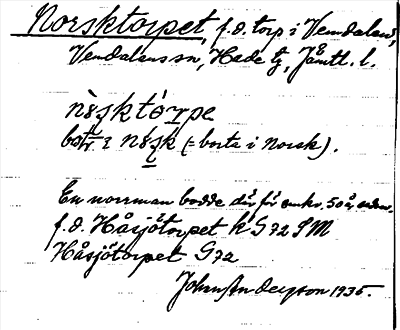 Norsktorpet, f.d. torp i Vemdalen,
Vemdalens sn, Hede tg, Jämtl. l.
nòsktórpe
i Nòsk (= borta i Norsk).
En norrman bodde där för omkr. 50 år sedan.
f.d. Håsjötorpet k G72 SM
Håsjötorpet G72
Johan Anderson 1935.